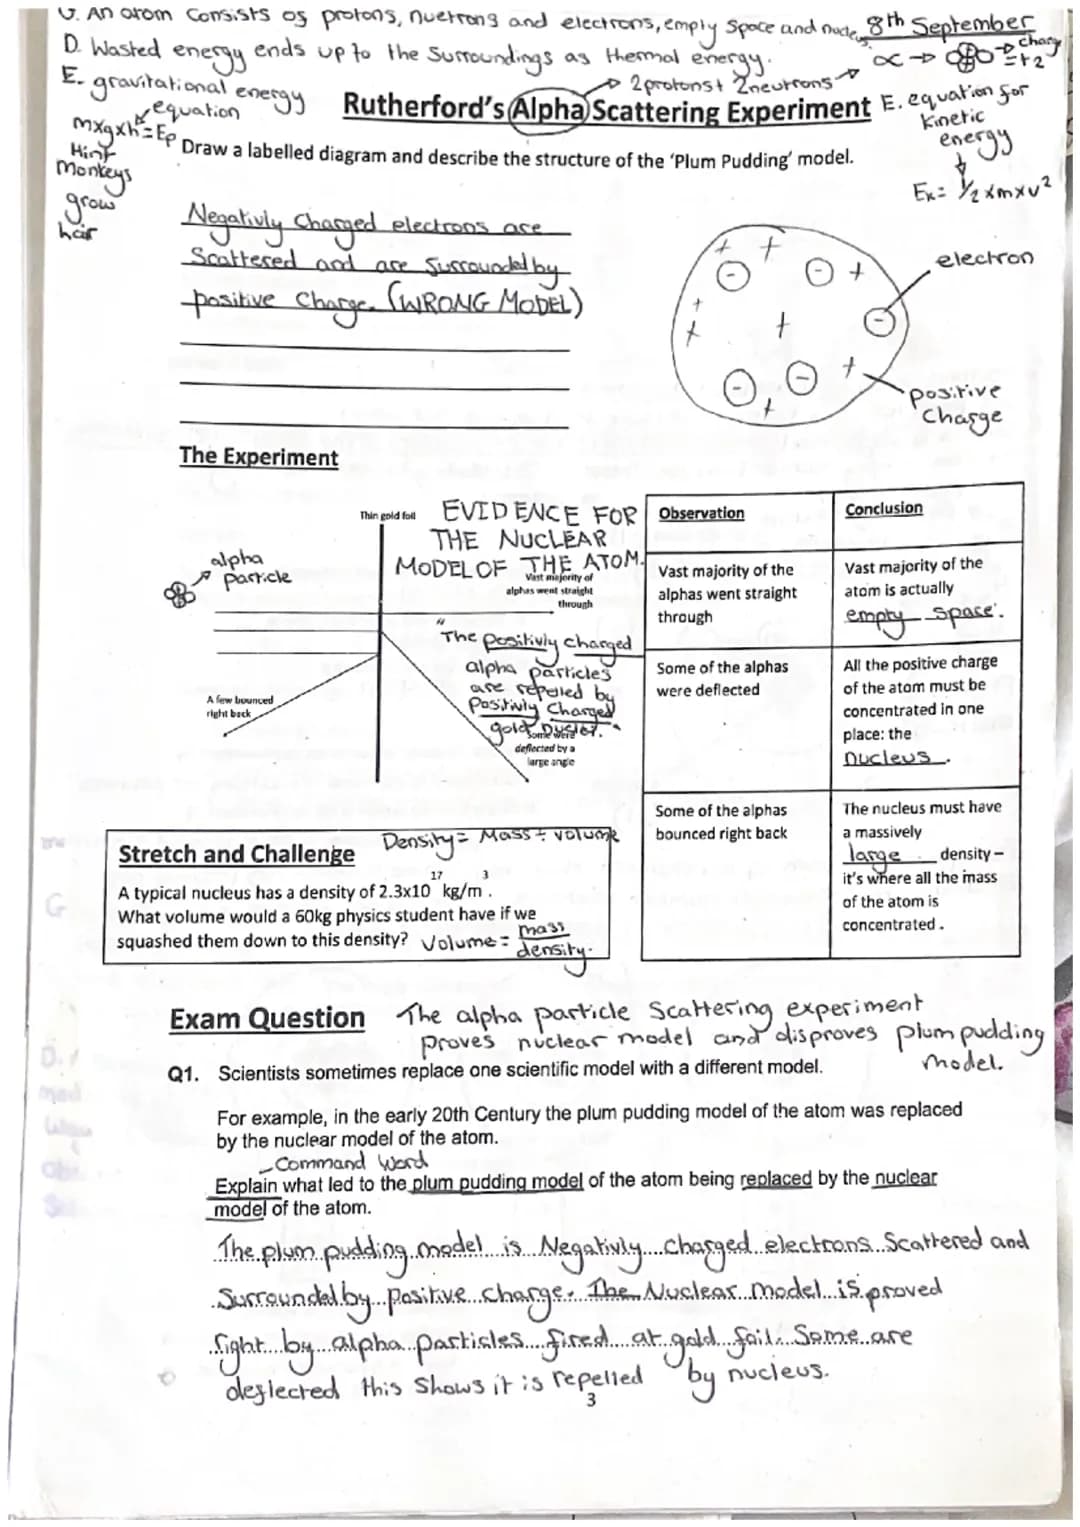 G. An atom Consists of protons, nuetrons and electrons, empty Space and nucleus.
8th September
D. Wasted energy ends up to the Surroundings as thermal energy.
∝ → = +2 charge
→ 2protons+ 2neutrons
E. gravitational energy
equation
mxgxh=Ep
Hint
Monkeys
grow
hair
Rutherford's Alpha Scattering Experiment
E. equation for
Kinetic
energy
Ek= ½xmxv²
Draw a labelled diagram and describe the structure of the 'Plum Pudding' model.
Negativly Charged electrons are
Scattered and are Surrounded by
positive Charge. (WRONG MODEL)
electron
positive
Charge
The Experiment
Thin gold foil
EVIDENCE FOR
THE NUCLEAR
MODEL OF THE ATOM.
alpha
particle
Vast majority of
alphas went straight
through
"The positivly charged
alpha particles
are repelled by
Positivly Charged
gold nucle
Some were
deflected by a
large angle
A few bounced
right back
Observation
Conclusion
Vast majority of the
alphas went straight
through
Vast majority of the
atom is actually
empty space.
Some of the alphas
were deflected
All the positive charge
of the atom must be
concentrated in one
place: the
nucleus.
Some of the alphas
bounced right back
The nucleus must have
a massively
large density –
it's where all the mass
of the atom is
concentrated.
Stretch and Challenge
Density= Mass ÷ volume
A typical nucleus has a density of 2.3x10¹⁷ kg/m³.
What volume would a 60kg physics student have if we
squashed them down to this density? Volume= mass
density.
Exam Question
The alpha particle Scattering experiment
proves nuclear model and disproves plum pudding
model.
Q1. Scientists sometimes replace one scientific model with a different model.
For example, in the early 20th Century the plum pudding model of the atom was replaced
by the nuclear model of the atom.
Command Word
Explain what led to the plum pudding model of the atom being replaced by the nuclear
model of the atom.
The plum pudding model is Negativly charged electrons Scattered and
Surrounded by positive charge. The Nuclear model is proved
right by alpha particles fired at gold foil. Some are
deflected this Shows it is repelled by nucleus.
3